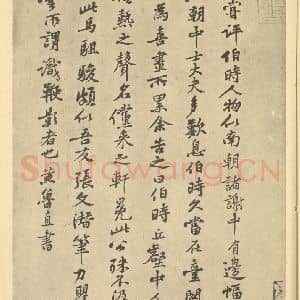 嘗評伯時人物似南朝諸謝中有邊幅
朝中士大夫多歎息伯時久當在臺閣
為喜畫所累余告之曰伯時丘壑中人
熱之聲名儻來之軒冕此公殊不汲
此馬駔駿頗似吾友張文潛筆力瞿
所謂識鞭影者也黃魯直書
Shufawang.CN